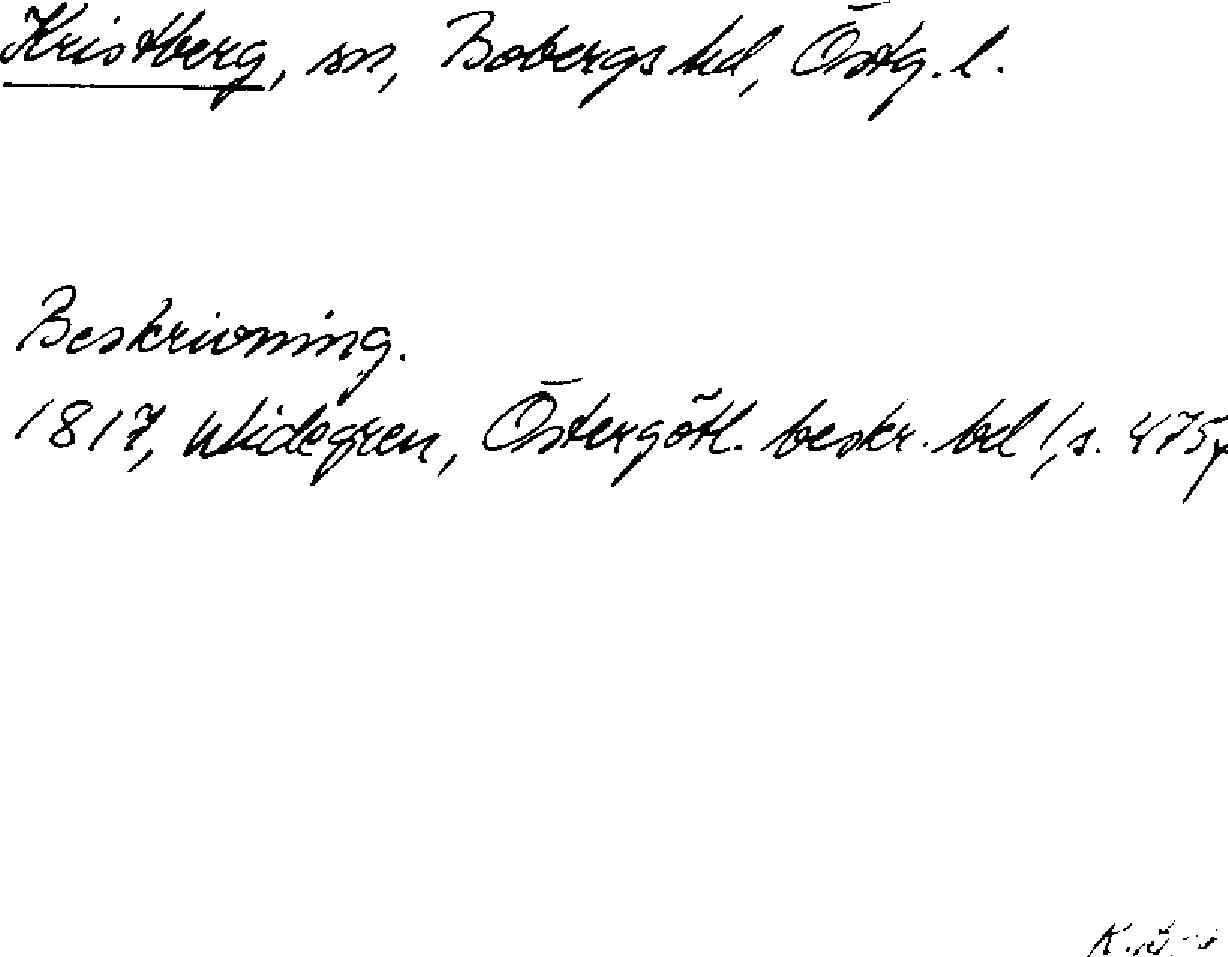 Kristberg, sn, Bobergs hd, Östg. l.
Beskrivning.
1817, Widegren, Östergötl. beskr. bd 1, s. 475f